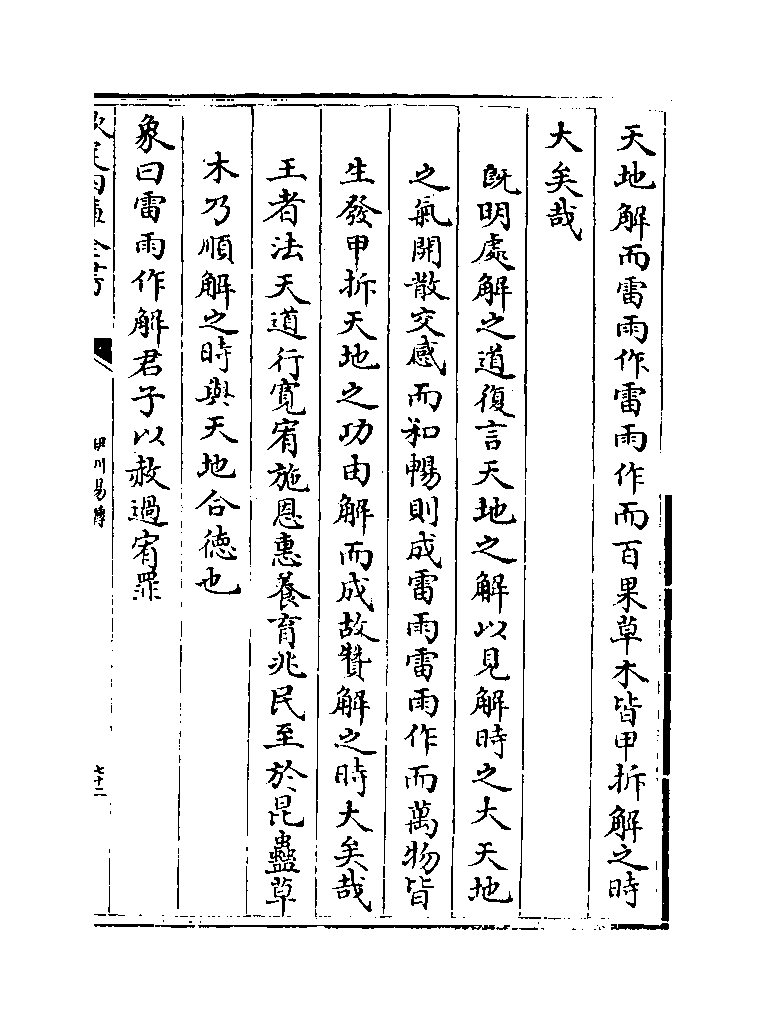 天地解而雷雨作雷雨作而百果草木皆甲拆解之時
大矣哉
既明處解之道復言天地之解以見解時之大天地
之氣開散交感而和暢則成雷雨雷雨作而萬物皆
生發甲拆天地之功由解而成故贊解之時大矣哉
王者法天道行寛宥施恩惠養育兆民至於昆蟲草
木乃順解之時與天地合德也
象曰雷雨作解君子以赦過宥罪
欽定四庫全書
伊川易傳
七十二